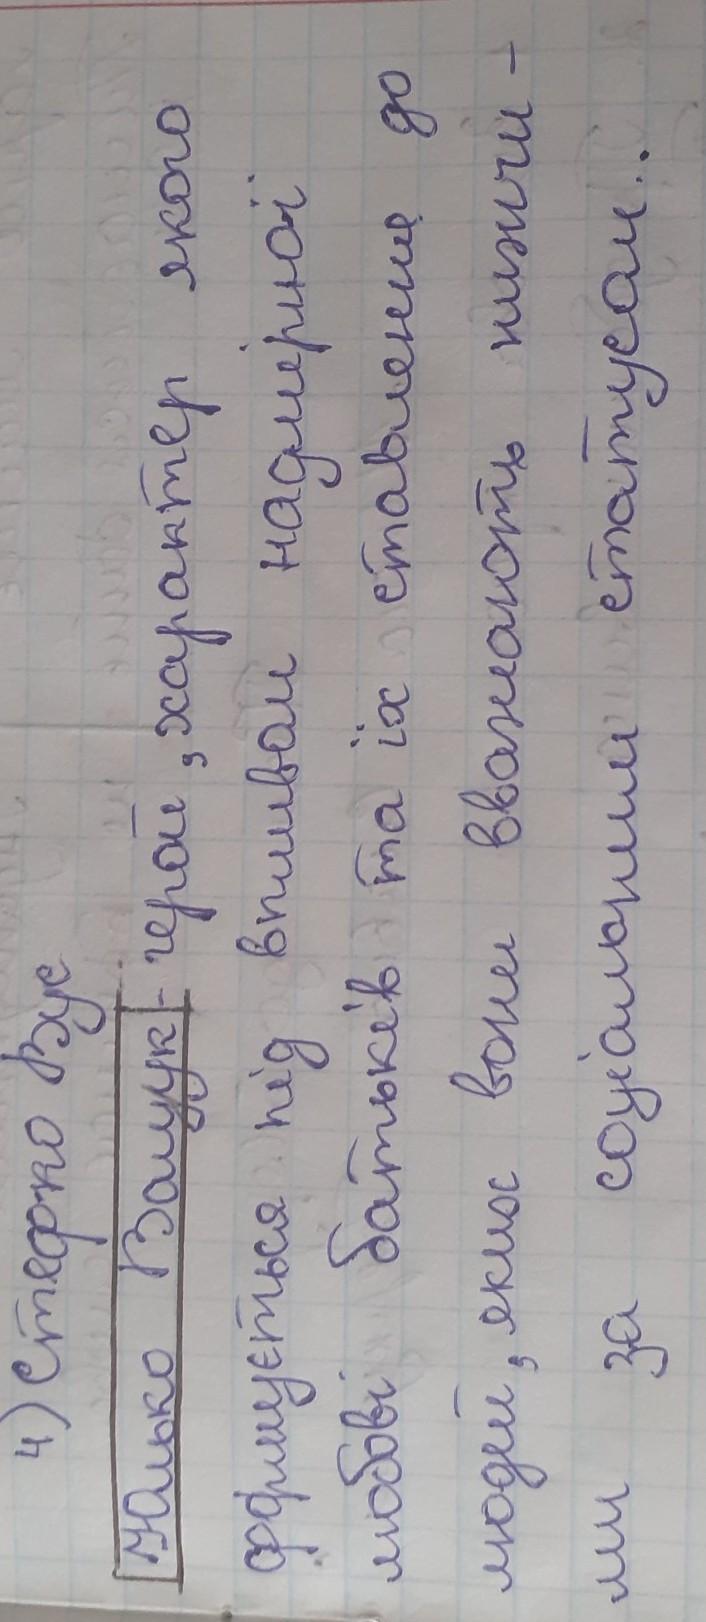 4) Стефко Вус
Юлько Ващук - герой, характер якого
формується під впливом надмірної
любові батьків та їх ставлення до
людей, яких вони вважають нижчи-
ми за соціальним статусом..